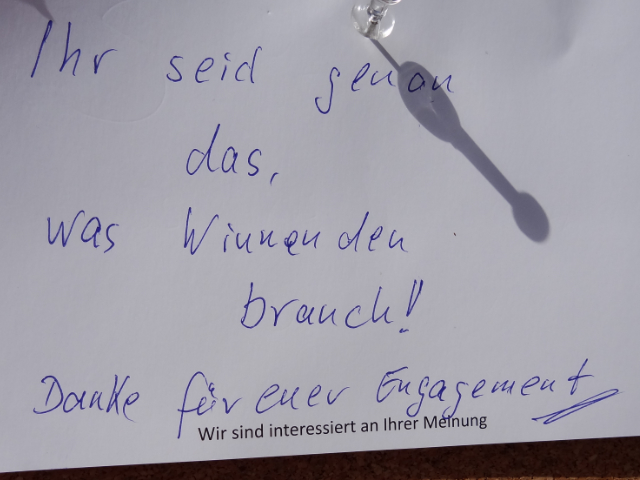 Ihr seid genau
das,
was Winnenden
brauch!!
Danke für euer Engagement
Wir sind interessiert an Ihrer Meinung